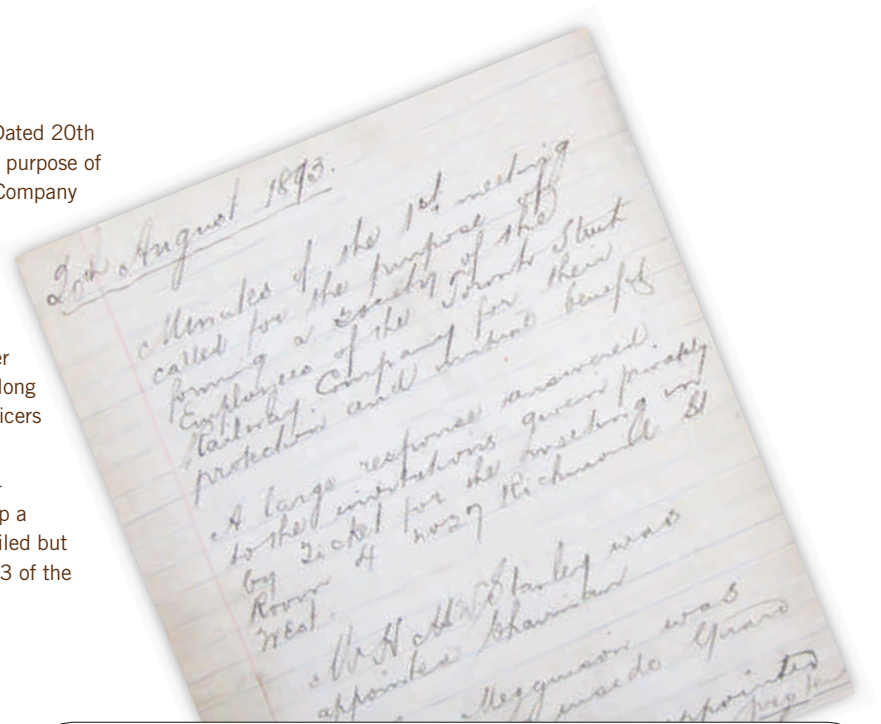 Dated 20th
purpose of
Company
er
long
icers
p a
iled but
3 of the
20th August 1893.
Minutes of the 1st meeting
called for the purpose of
forming a society of the
Employees of the Toronto Street
Railway Company for their
protection and mutual benefit
A large response answered
to the invitations given privately
by Ticket for the meeting in
Room 4 No 27 Richmond St
West.
Mr H M Stanley was
appointed Chairman
was
inside Guard
appointed